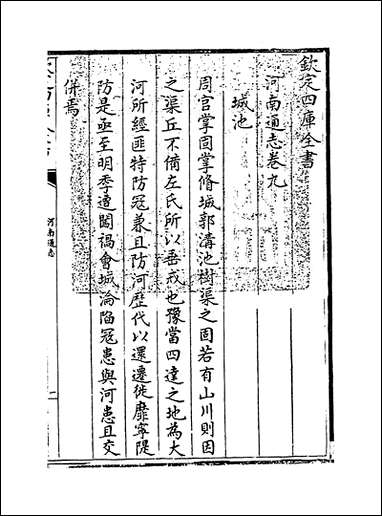 欽定四庫全書
河南通志卷九
城池
周官掌固掌脩城郭溝池樹渠之固若有山川則因
之渠丘不備左氏所以垂戒也豫當四達之地為大
河所經匪特防寇兼且防河歴代以還遷徙靡寧隄
防是亟至明季遭闖禍會城淪陷寇患與河患且交
併焉
河南通志